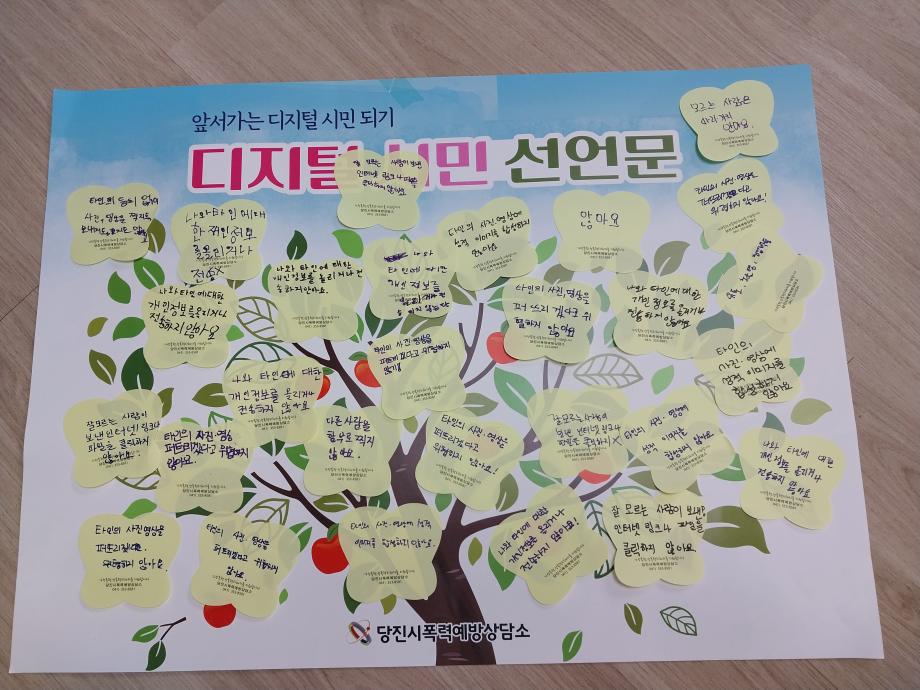 앞서가는 디지털 시민 되기
디지털 시민 선언문
모르는 사람은
않아요
타인의 동의 없이
나와 타인에 대
한 개인정보
를 올리거나
잘 모르는 사람이 보낸
인터넷 링크나 파일은
클릭하지 않아요
타인의 사진·영상에
성적 이미지를 합성하지
않아요
않아요
타인의 사진·영상을
퍼뜨리겠다고
위협하지 않아요!
나와 타인에 대한
개인정보를 올리거나
전송하지 않아요
나와 타인에 대한
개인정보를 올리거나 전
송하지 않아요.
나와
타인에 대한
개인정보를
타인의 사진, 영상을
퍼뜨리겠다고 위
협하지 않아요
나와 타인에 대한
개인정보를 올리거나
전송하지 않아요
타인의 사진·영상을
퍼뜨리겠다고 위협하지
않기!
타인의
사진·영상에
성적 이미지를
합성하지
않아요
나와 타인에 대한
개인정보를 올리거나
전송하지 않아요
잘모르는 사람이
보낸 인터넷 링크나
파일은 클릭하지
않아요
타인의 사진·영상
퍼뜨리겠다고 위협하지
않아요.
다른사람을
함부로 찍지
않아요.
타인의 사진, 영상을
퍼뜨리겠다고
위협하지 않아요!
잘모르는 사람이
보낸 인터넷 링크나
파일은 클릭하지 X
타인의 사진, 영상에
성적 이미지를
합성하지 않아요
나와 타인에 대한
개인정보를 올리거나
전송하지 않아요
타인의 사진영상을
퍼뜨리겠다고
위협하지 않아요.
타인의 사진·영상을
퍼뜨리겠다고 위협하지
않아요.
타인의 사진·영상에 성적
이미지를 합성하지 않아요.
나와 타인에 대한
개인정보를 올리거나
전송하지 않아요!
잘 모르는 사람이 보낸
인터넷 링크나 파일을
클릭하지 않아요
당진시폭력예방상담소